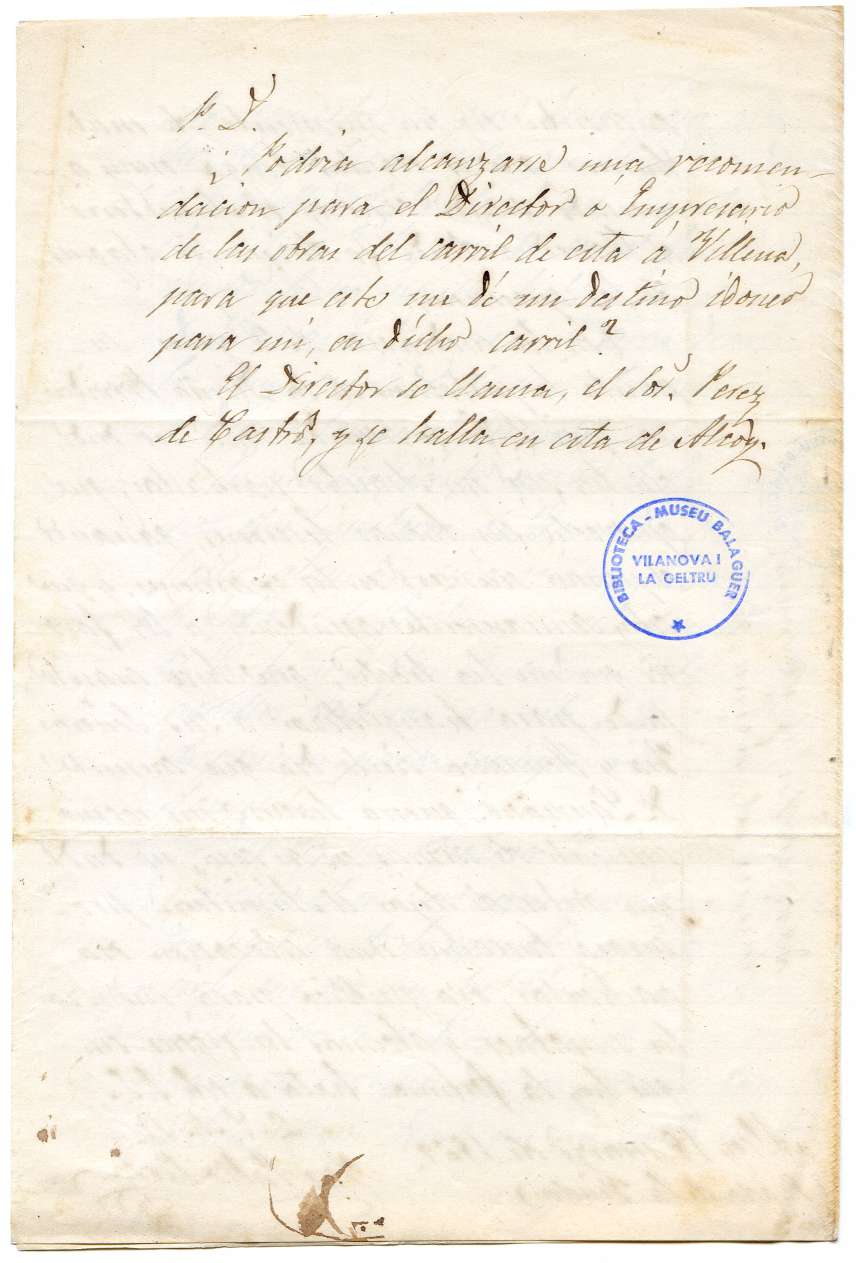 P. D.
¿Podria alcanzarse una recomen-
dacion para el Director o Empresario
de las obras del carril de esta á Villena,
para que este me dé un destino idoneo
para mi, en dicho carril?
El Director se llama, el Sor. Perez
de Castro, y se halla en esta de Alcoy.
BIBLIOTECA - MUSEU BALAGUER
VILANOVA I
LA GELTRU